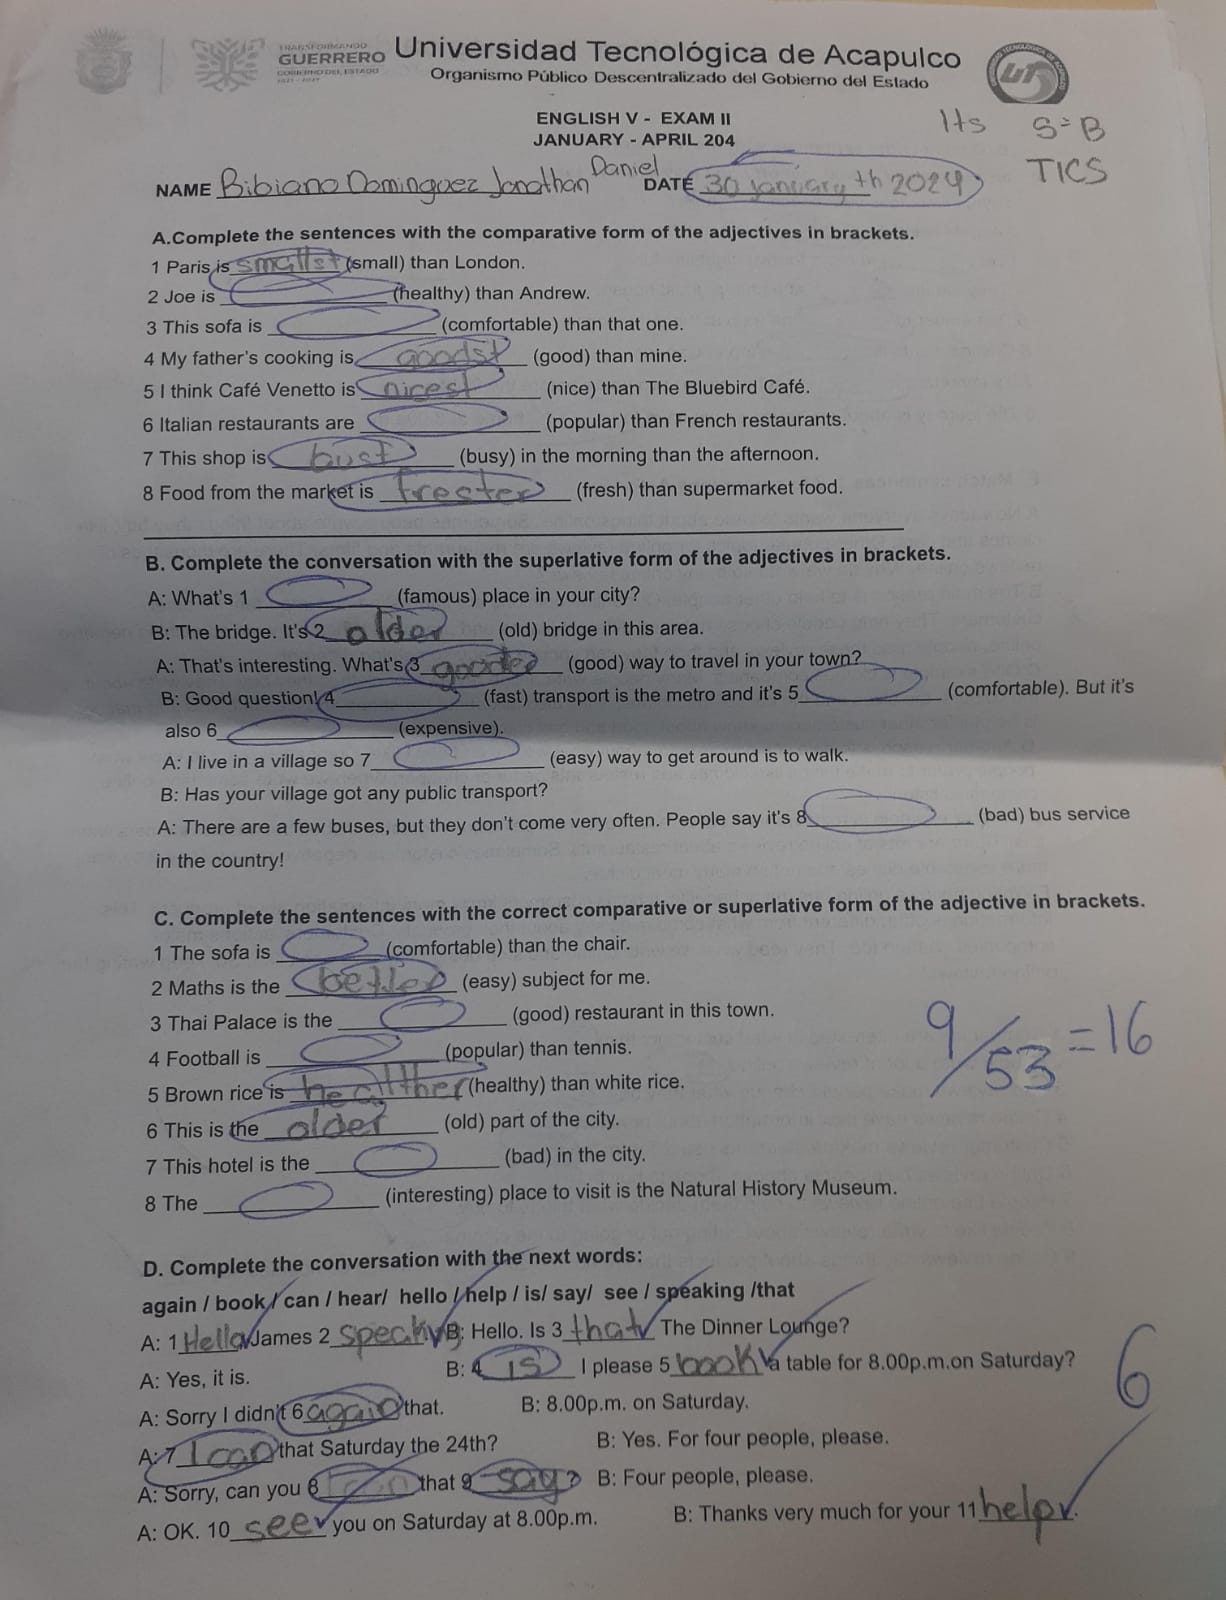 TRANSFORMANDO
GUERRERO
GOBIERNO DEL ESTADO
2021 - 2027
Universidad Tecnológica de Acapulco
Organismo Público Descentralizado del Gobierno del Estado
ENGLISH V - EXAM II
JANUARY - APRIL 204
1ts 5=B
TICS
NAME Bibiano Dominguez Jonathan Daniel DATE 30 January th 2024
A.Complete the sentences with the comparative form of the adjectives in brackets.
1 Paris is smallst (small) than London.
2 Joe is ____ (healthy) than Andrew.
3 This sofa is ____ (comfortable) than that one.
4 My father's cooking is goodst (good) than mine.
5 I think Café Venetto is nicest (nice) than The Bluebird Café.
6 Italian restaurants are ____ (popular) than French restaurants.
7 This shop is bust (busy) in the morning than the afternoon.
8 Food from the market is frester (fresh) than supermarket food.
B. Complete the conversation with the superlative form of the adjectives in brackets.
A: What's 1 ____ (famous) place in your city?
B: The bridge. It's 2 older (old) bridge in this area.
A: That's interesting. What's 3 gooder (good) way to travel in your town?
B: Good question! 4 ____ (fast) transport is the metro and it's 5 ____ (comfortable). But it's
also 6 ____ (expensive).
A: I live in a village so 7 ____ (easy) way to get around is to walk.
B: Has your village got any public transport?
A: There are a few buses, but they don't come very often. People say it's 8 ____ (bad) bus service
in the country!
C. Complete the sentences with the correct comparative or superlative form of the adjective in brackets.
1 The sofa is ____ (comfortable) than the chair.
2 Maths is the better (easy) subject for me.
3 Thai Palace is the ____ (good) restaurant in this town.
4 Football is ____ (popular) than tennis.
5 Brown rice is healther (healthy) than white rice.
6 This is the older (old) part of the city.
7 This hotel is the ____ (bad) in the city.
8 The ____ (interesting) place to visit is the Natural History Museum.
9/53 = 16
D. Complete the conversation with the next words:
again / book / can / hear/ hello / help / is/ say/ see / speaking /that
A: 1 Hello James 2 speaking B: Hello. Is 3 that The Dinner Lounge?
A: Yes, it is. B: 4 is I please 5 book a table for 8.00p.m.on Saturday?
A: Sorry I didn't 6 again that. B: 8.00p.m. on Saturday.
A: 7 I can that Saturday the 24th? B: Yes. For four people, please.
A: Sorry, can you 8 ____ that 9 say? B: Four people, please.
A: OK. 10 see you on Saturday at 8.00p.m. B: Thanks very much for your 11 help.
6